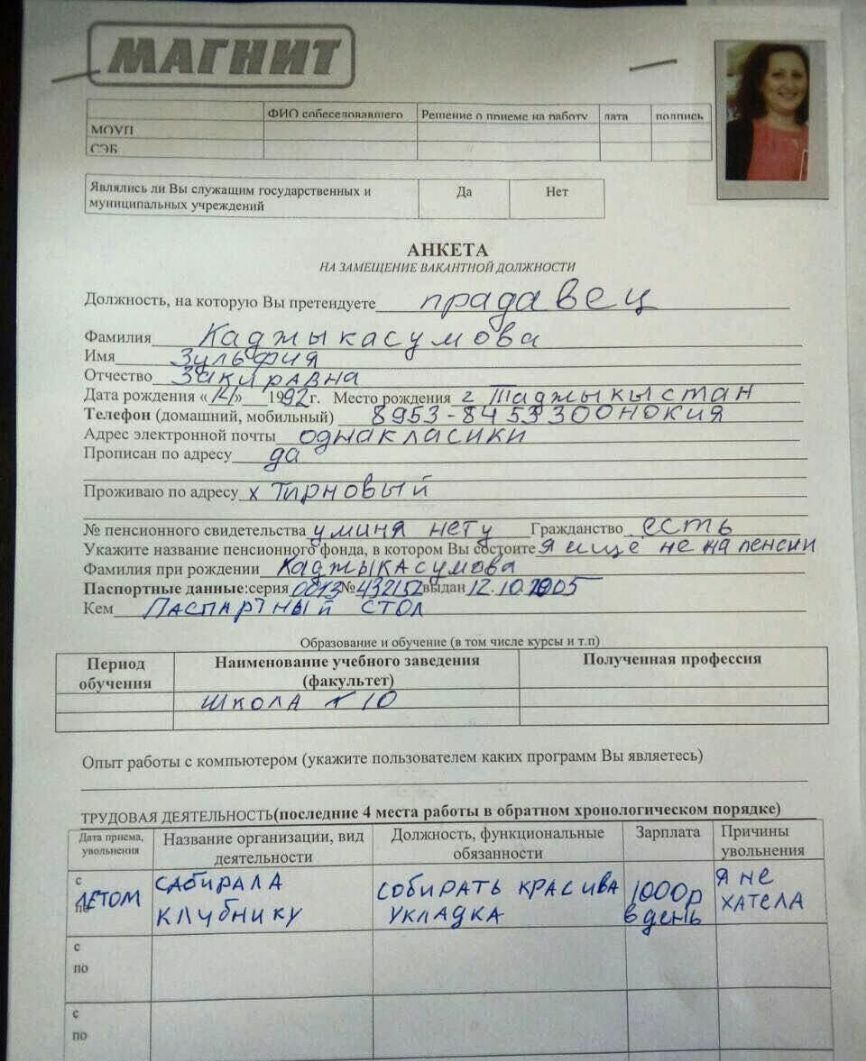 МАГНИТ
ФИО собеседовавшего Решение о приеме на работу дата подпись
МОУП
СЭБ
Являлись ли Вы служащим государственных и Да Нет
муниципальных учреждений
АНКЕТА
НА ЗАМЕЩЕНИЕ ВАКАНТНОЙ ДОЛЖНОСТИ
Должность, на которую Вы претендуете прадавец
Фамилия Каджыкасумова
Имя Зульфия
Отчество Закиравна
Дата рождения « » 1992г. Место рождения г Таджыкыстан
Телефон (домашний, мобильный) 8953-8453300НОКИЯ
Адрес электронной почты однакласики
Прописан по адресу да
Проживаю по адресу х Тирновый
№ пенсионного свидетельства у миня нету Гражданство есть
Укажите название пенсионного фонда, в котором Вы состоите я ищё не на пенсии
Фамилия при рождении Каджыкасумова
Паспортные данные:серия 0013 №432152 выдан 12.10.2005
Кем Паспартный стол
Образование и обучение (в том числе курсы и т.п)
Период Наименование учебного заведения Полученная профессия
обучения (факультет)
Школа № 10
Опыт работы с компьютером (укажите пользователем каких программ Вы являетесь)
ТРУДОВАЯ ДЕЯТЕЛЬНОСТЬ(последние 4 места работы в обратном хронологическом порядке)
Дата приема, Название организации, вид Должность, функциональные Зарплата Причины
увольнения деятельности обязанности увольнения
с сабирала собирать красива 1000р я не
по летом клубнику укладка в день хатела
с
по
с
по